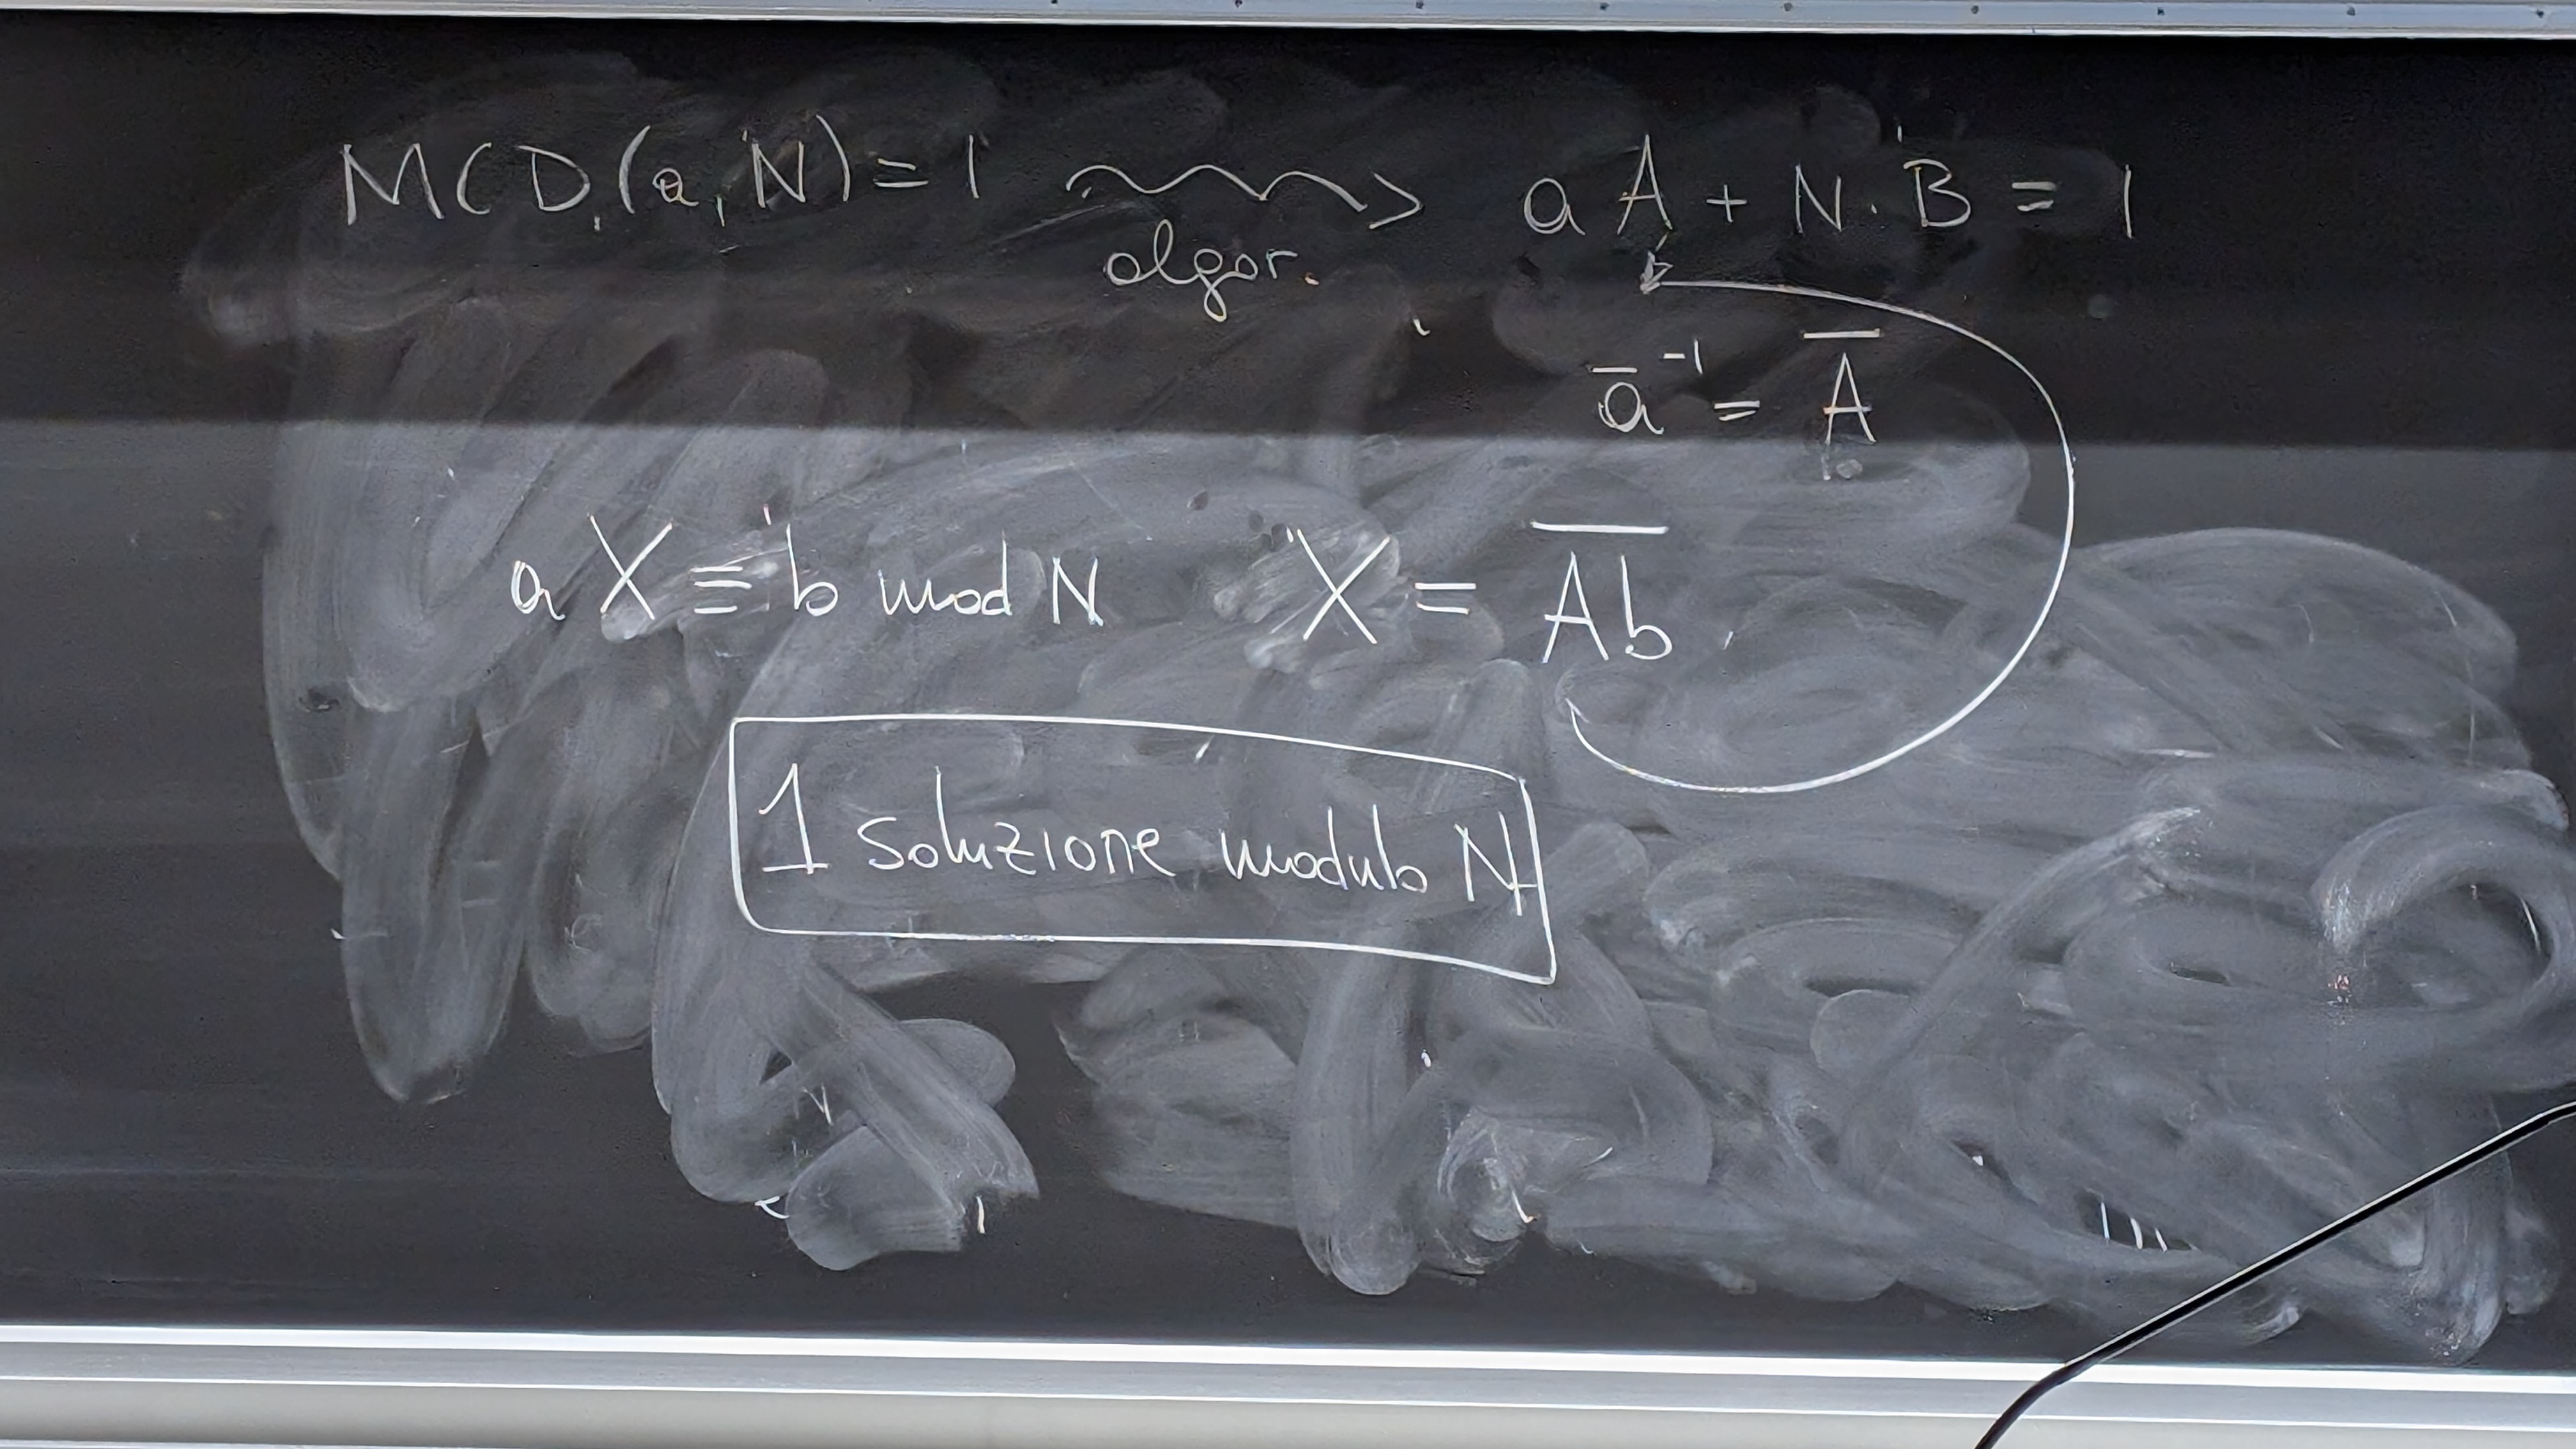 MCD(a,N)=1 ⇝ aA + N·B = 1
algor.
a̅⁻¹ = A̅
aX ≡ b mod N X = A̅b̅
1 soluzione modulo N